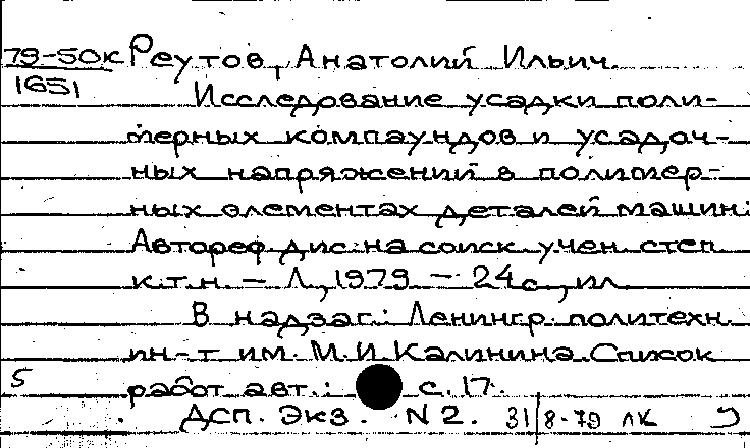 79-50к Реутов, Анатолий Ильич.
1651
Исследование усадки поли-
мерных компаундов и усадоч-
ных напряжений в полимер-
ных элементах деталей машин:
Автореф. дис. на соиск. учен. степ.
к.т.н. - Л., 1979. - 24 с., ил.
В надзаг.: Ленингр. политехн.
ин-т им. М.И. Калинина. Список
5 работ авт.: с. 17.
ДСП. Экз. N 2. 31/8-79 ЛК